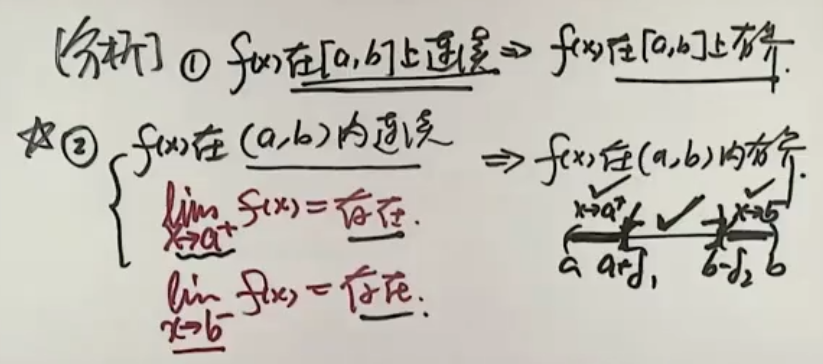 [分析] ① f(x)在[a,b]上连续 ⇒ f(x)在[a,b]上有界.
☆② { f(x)在(a,b)内连续 ⇒ f(x)在(a,b)内有界.
lim x→a⁺ f(x)=存在.
lim x→b⁻ f(x)=存在.
x→a⁺ x→b⁻
a a+δ₁ b-δ₂ b